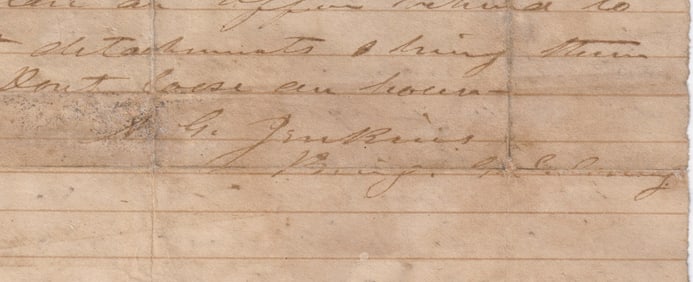 an officer behind to
detachments & bring them
Dont loose an hour
A. G. Jenkins
Brig. Genl. Comg.